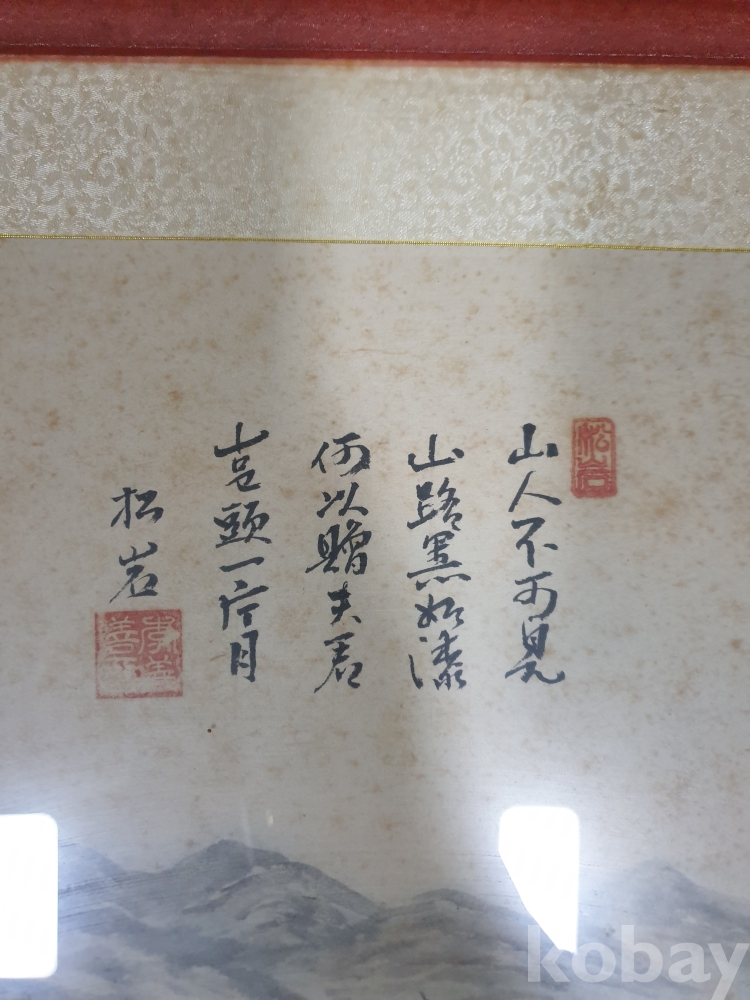 松岩
山人不可見
山路黑如漆
何以贈夫君
頭一片月
松岩
kobay